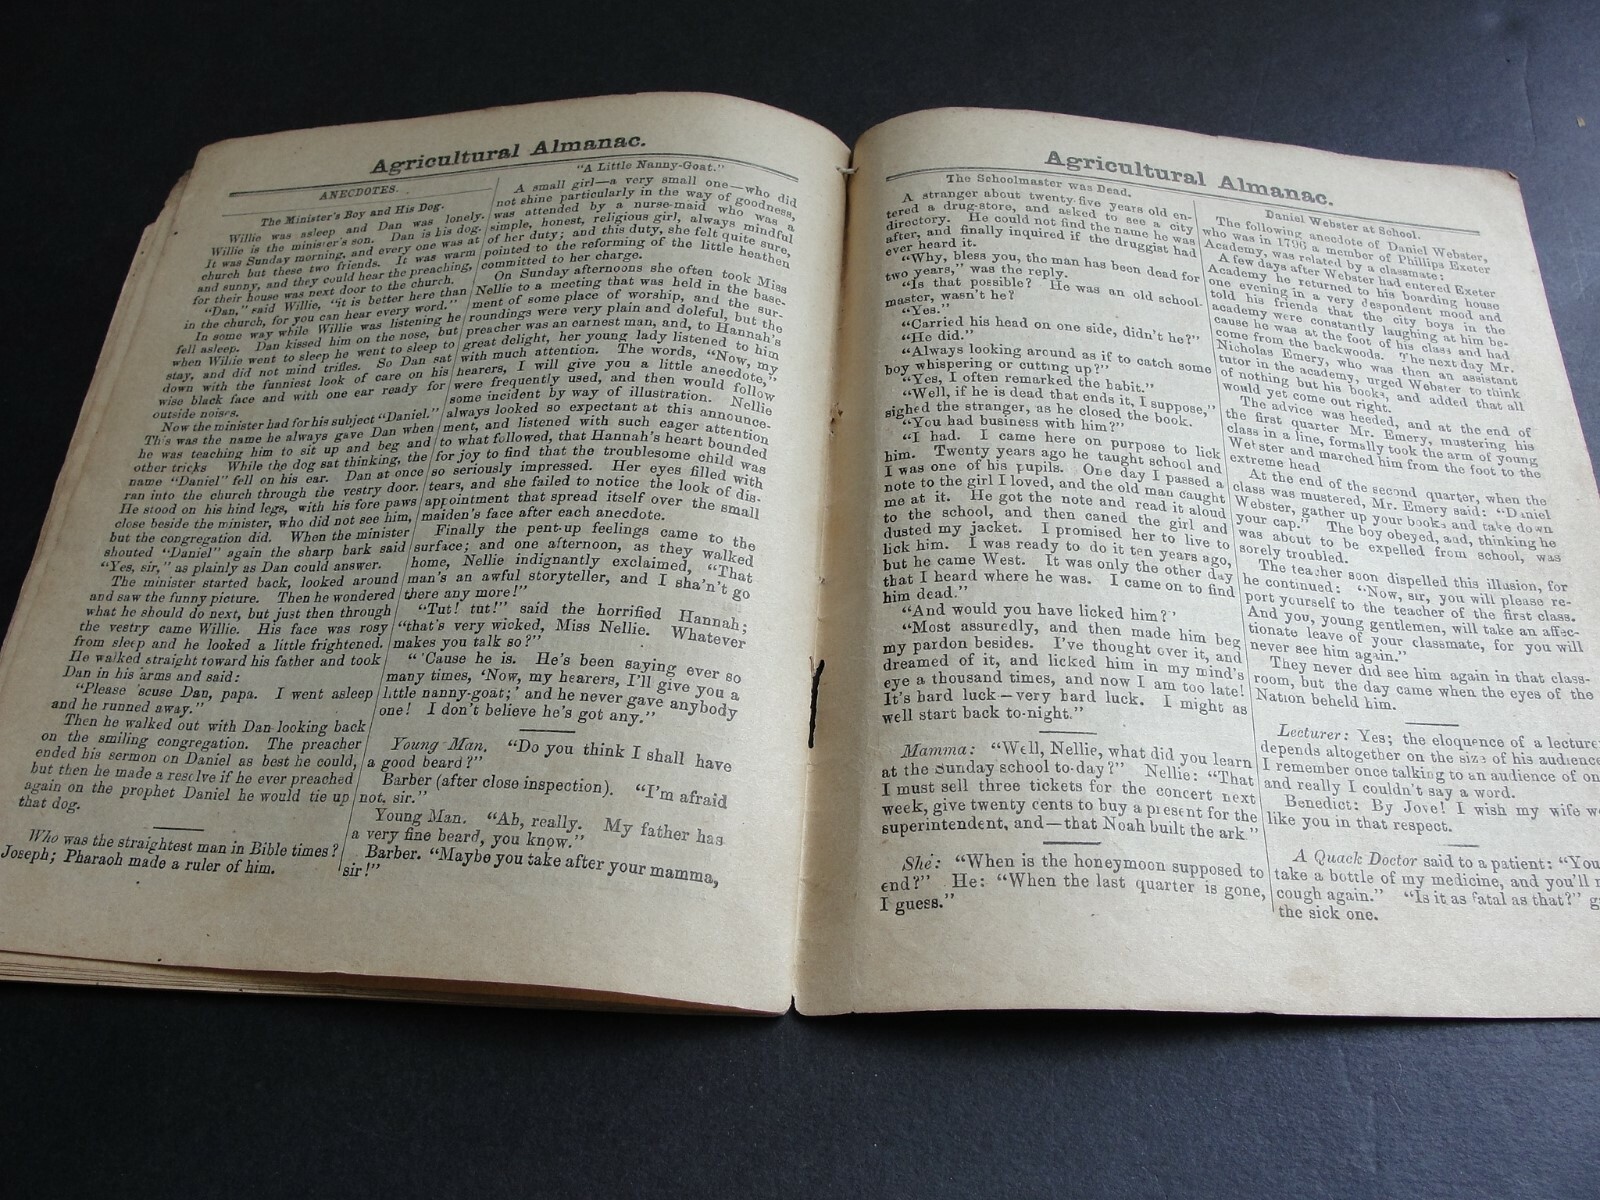 Agricultural Almanac.
ANECDOTES.
The Minister's Boy and His Dog.
Willie was asleep and Dan was lonely.
Willie is the minister's son. Dan is his dog.
It was Sunday morning, and every one was at
church but these two friends. It was warm
and sunny, and they could hear the preaching,
for their house was next door to the church.
"Dan," said Willie, "it is better here than
in the church, for you can hear every word."
In some way while Willie was listening he
fell asleep. Dan kissed him on the nose, but
when Willie went to sleep he went to sleep to
stay, and did not mind trifles. So Dan sat
down with the funniest look of care on his
wise black face and with one ear ready for
outside noises.
Now the minister had for his subject "Daniel."
This was the name he always gave Dan when
he was teaching him to sit up and beg and
other tricks While the dog sat thinking, the
name "Daniel" fell on his ear. Dan at once
ran into the church through the vestry door.
He stood on his hind legs, with his fore paws
close beside the minister, who did not see him,
but the congregation did. When the minister
shouted "Daniel" again the sharp bark said
"Yes, sir," as plainly as Dan could answer.
The minister started back, looked around
and saw the funny picture. Then he wondered
what he should do next, but just then through
the vestry came Willie. His face was rosy
from sleep and he looked a little frightened.
He walked straight toward his father and took
Dan in his arms and said:
"Please 'scuse Dan, papa. I went asleep
and he runned away."
Then he walked out with Dan looking back
on the smiling congregation. The preacher
ended his sermon on Daniel as best he could,
but then he made a resolve if he ever preached
again on the prophet Daniel he would tie up
that dog.
Who was the straightest man in Bible times?
Joseph; Pharaoh made a ruler of him.
"A Little Nanny-Goat."
A small girl—a very small one—who did
not shine particularly in the way of goodness,
was attended by a nurse-maid who was a
simple, honest, religious girl, always mindful
of her duty; and this duty, she felt quite sure,
pointed to the reforming of the little heathen
committed to her charge.
On Sunday afternoons she often took Miss
Nellie to a meeting that was held in the base-
ment of some place of worship, and the sur-
roundings were very plain and doleful, but the
preacher was an earnest man, and, to Hannah's
great delight, her young lady listened to him
with much attention. The words, "Now, my
hearers, I will give you a little anecdote,"
were frequently used, and then would follow
some incident by way of illustration. Nellie
always looked so expectant at this announce-
ment, and listened with such eager attention
to what followed, that Hannah's heart bounded
for joy to find that the troublesome child was
so seriously impressed. Her eyes filled with
tears, and she failed to notice the look of dis-
appointment that spread itself over the small
maiden's face after each anecdote.
Finally the pent-up feelings came to the
surface; and one afternoon, as they walked
home, Nellie indignantly exclaimed, "That
man's an awful storyteller, and I sha'n't go
there any more!"
"Tut! tut!" said the horrified Hannah;
"that's very wicked, Miss Nellie. Whatever
makes you talk so?"
"'Cause he is. He's been saying ever so
many times, 'Now, my hearers, I'll give you a
little nanny-goat;' and he never gave anybody
one! I don't believe he's got any."
Young Man. "Do you think I shall have
a good beard?"
Barber (after close inspection). "I'm afraid
not, sir."
Young Man. "Ah, really. My father has
a very fine beard, you know."
Barber. "Maybe you take after your mamma,
sir!"
Agricultural Almanac.
The Schoolmaster was Dead.
A stranger about twenty-five years old en-
tered a drug-store, and asked to see a city
directory. He could not find the name he was
after, and finally inquired if the druggist had
ever heard it.
"Why, bless you, the man has been dead for
two years," was the reply.
"Is that possible? He was an old school-
master, wasn't he?
"Yes."
"Carried his head on one side, didn't he?"
"He did."
"Always looking around as if to catch some
boy whispering or cutting up?"
"Yes, I often remarked the habit."
"Well, if he is dead that ends it, I suppose,"
sighed the stranger, as he closed the book.
"You had business with him?"
"I had. I came here on purpose to lick
him. Twenty years ago he taught school and
I was one of his pupils. One day I passed a
note to the girl I loved, and the old man caught
me at it. He got the note and read it aloud
to the school, and then caned the girl and
dusted my jacket. I promised her to live to
lick him. I was ready to do it ten years ago,
but he came West. It was only the other day
that I heard where he was. I came on to find
him dead."
"And would you have licked him?"
"Most assuredly, and then made him beg
my pardon besides. I've thought over it, and
dreamed of it, and licked him in my mind's
eye a thousand times, and now I am too late!
It's hard luck—very hard luck. I might as
well start back to-night."
Mamma: "Well, Nellie, what did you learn
at the Sunday school to-day?" Nellie: "That
I must sell three tickets for the concert next
week, give twenty cents to buy a present for the
superintendent, and—that Noah built the ark"
She: "When is the honeymoon supposed to
end?" He: "When the last quarter is gone,
I guess."
Daniel Webster at School.
The following anecdote of Daniel Webster,
who was in 1796 a member of Phillips Exeter
Academy, was related by a classmate:
A few days after Webster had entered Exeter
Academy he returned to his boarding house
one evening in a very despondent mood and
told his friends that the city boys in the
academy were constantly laughing at him be-
cause he was at the foot of his class and had
come from the backwoods. The next day Mr.
Nicholas Emery, who was then an assistant
tutor in the academy, urged Webster to think
of nothing but his books, and added that all
would yet come out right.
The advice was heeded, and at the end of
the first quarter Mr. Emery, mustering his
class in a line, formally took the arm of young
Webster and marched him from the foot to the
extreme head
At the end of the second quarter, when the
class was mustered, Mr. Emery said: "Daniel
Webster, gather up your books and take down
your cap." The boy obeyed, and, thinking he
was about to be expelled from school, was
sorely troubled.
The teacher soon dispelled this illusion, for
he continued: "Now, sir, you will please re-
port yourself to the teacher of the first class.
And you, young gentlemen, will take an affec-
tionate leave of your classmate, for you will
never see him again."
They never did see him again in that class-
room, but the day came when the eyes of the
Nation beheld him.
Lecturer: Yes; the eloquence of a lecture
depends altogether on the size of his audience
I remember once talking to an audience of on
and really I couldn't say a word.
Benedict: By Jove! I wish my wife w
like you in that respect.
A Quack Doctor said to a patient: "You
take a bottle of my medicine, and you'll
cough again." "Is it as fatal as that?" g
the sick one.